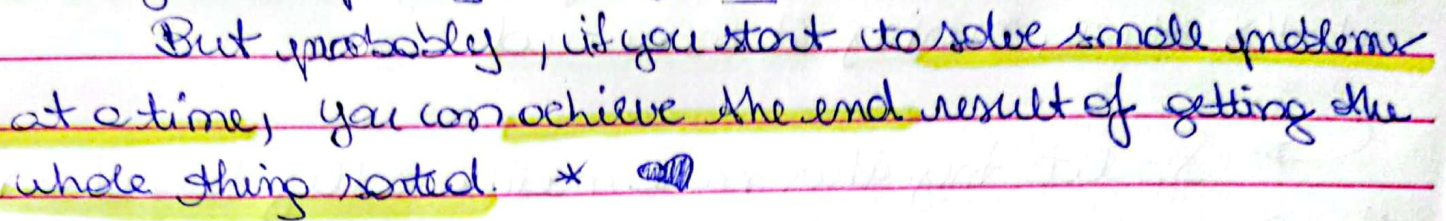 But probably, if you start to solve small problems
at a time, you can achieve the end result of getting the
whole thing sorted. *